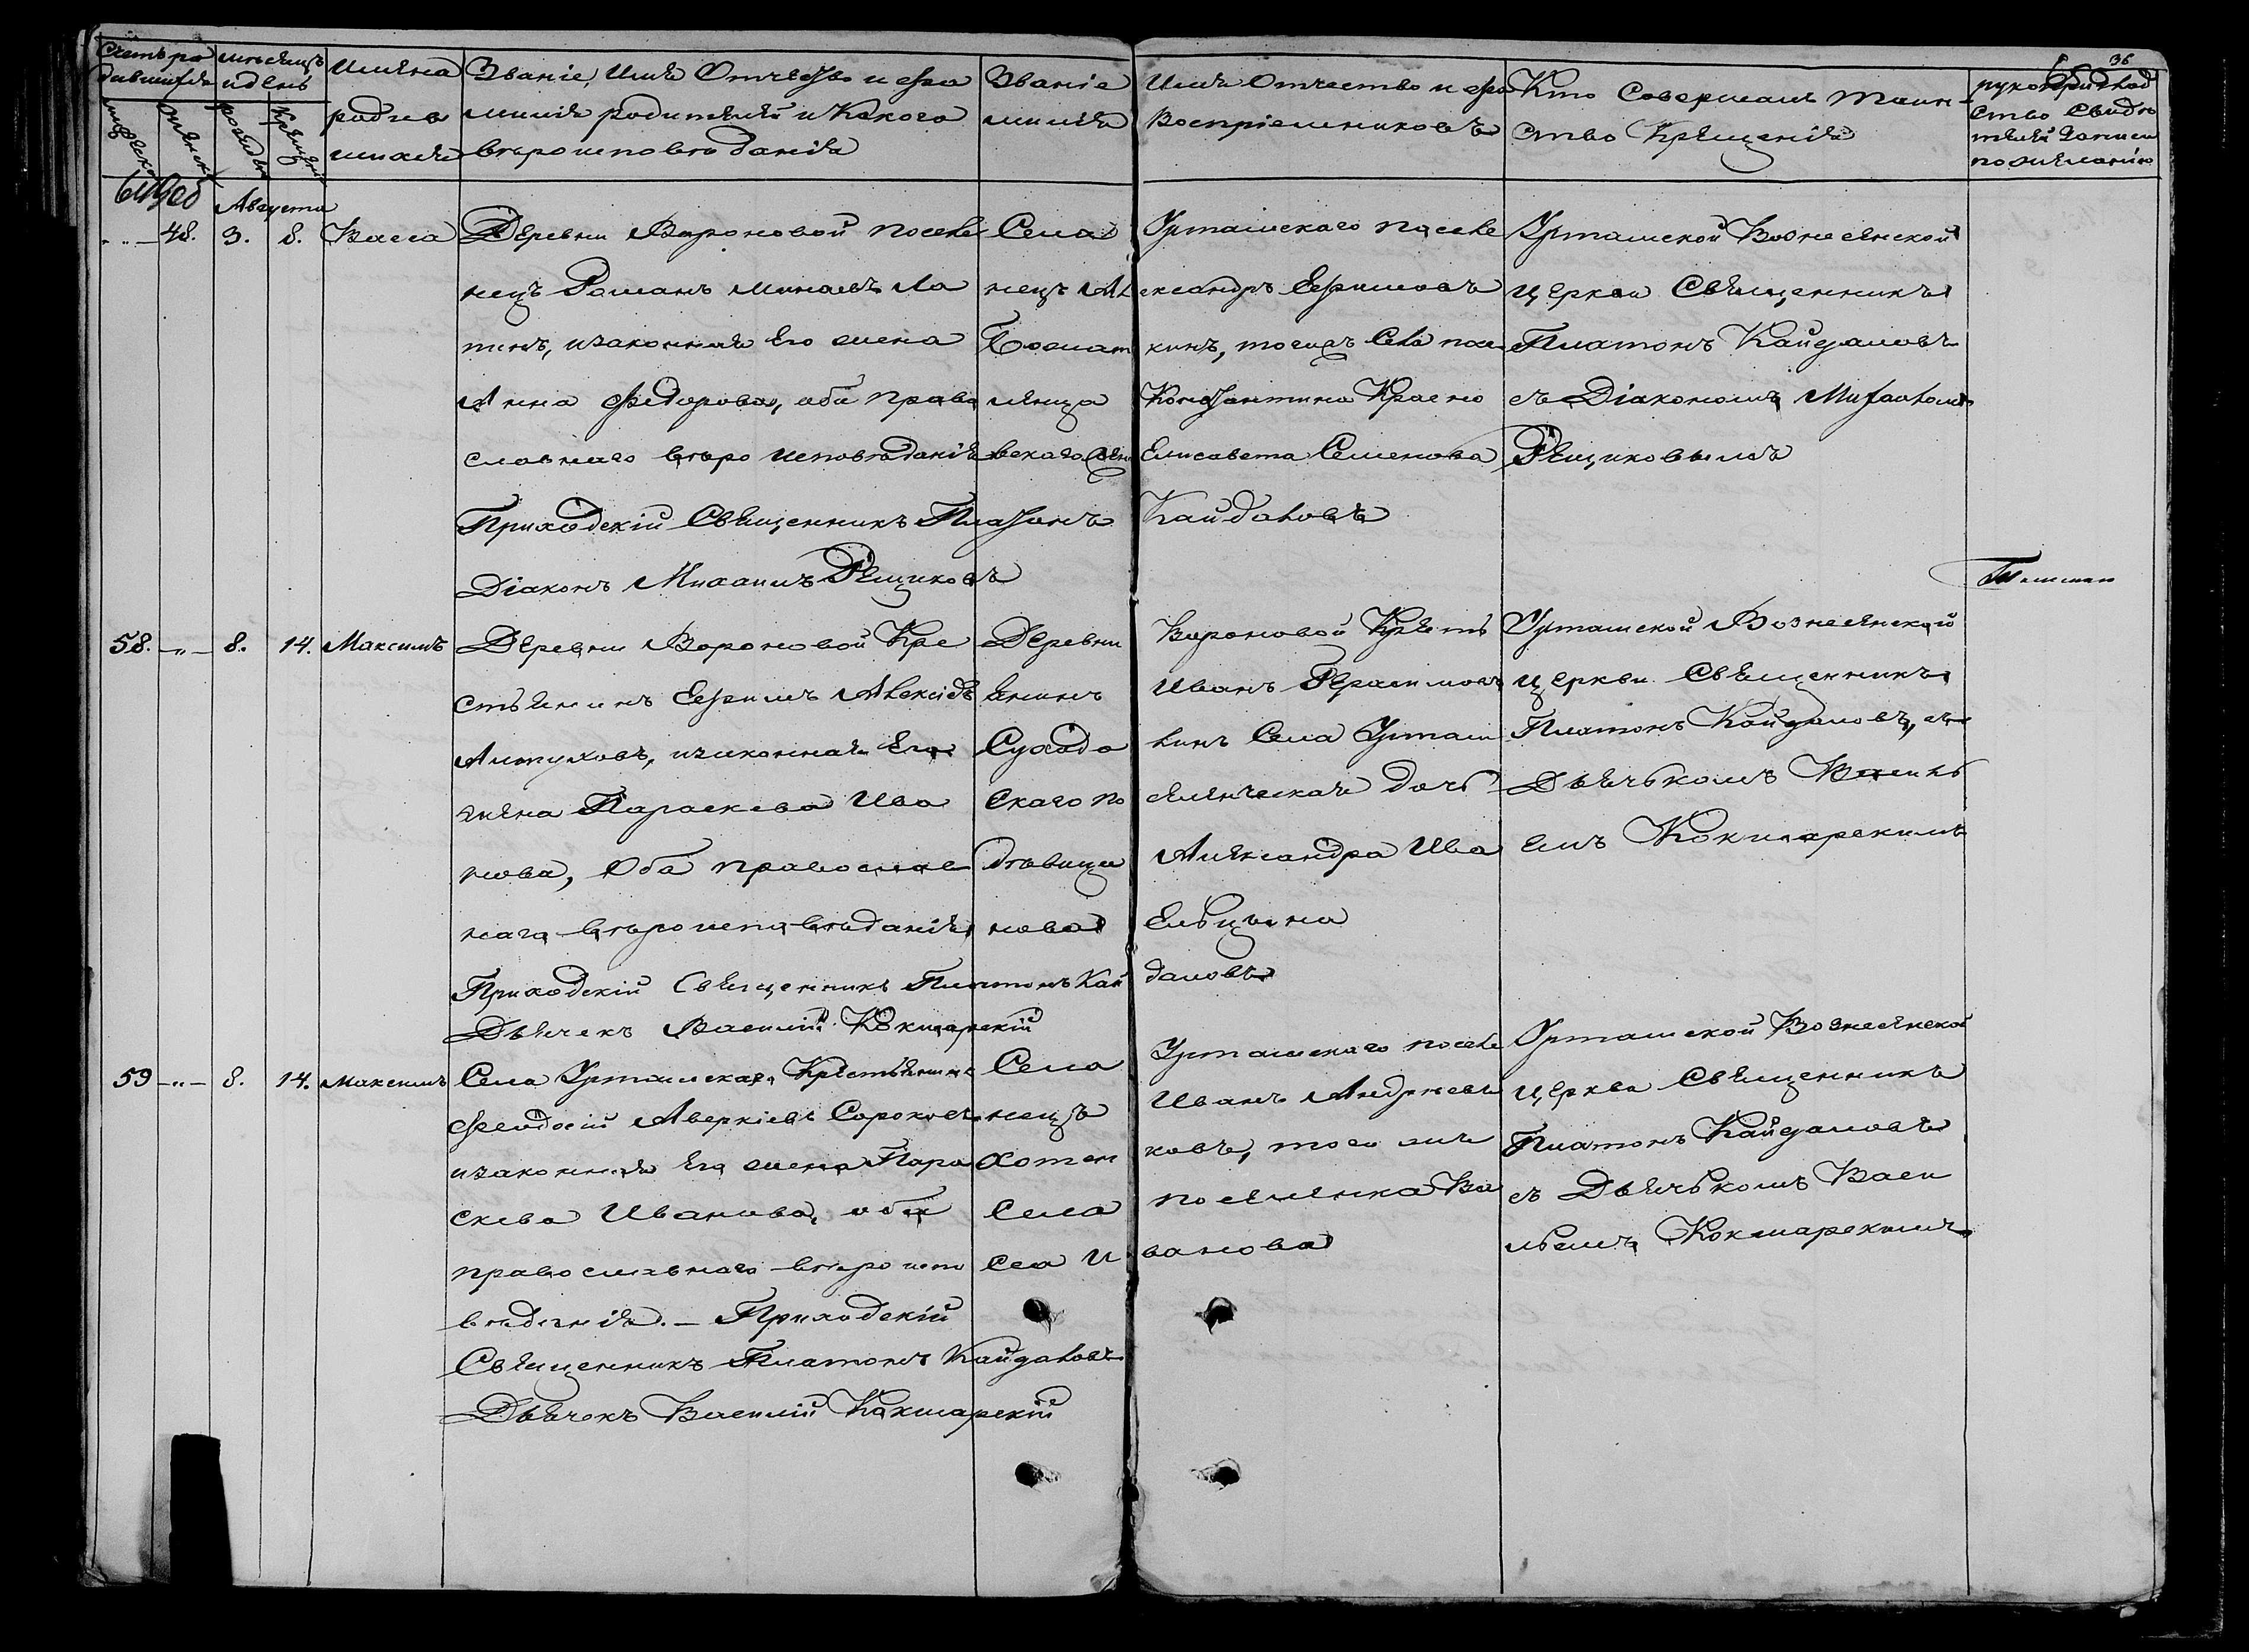 36
Счетъ ро
дившихся
мѣсяцъ
и день
Имена
родив
шихся
Званіе, Имя Отчество и фа
милія родителей и Какого
вѣроисповѣданія
Званіе
милія
Имя Отчество и фа
Воспріемниковъ
Кто Совершалъ Таин-
ство Крещенія
рукоприклад
ство Свидѣ
телей записи
по желанію
Августа
48. 3. 8. Васса
Деревни Вороновой поселе
нецъ Романъ Ла
тинъ, и законная Его жена
Анна Федорова, оба право
славнаго вѣро исповѣданія
Приходскій Священникъ Платонъ
Діаконъ Михаилъ Рещиковъ
Села Урташскаго поселе
нецъ Александръ Ефимовъ
кинъ, тогожъ Села посе
ленца Константина Красно
Елисавета Семенова
Кайдаловъ
Урташской Вознесенской
церкви Священникъ
Платонъ Кайдаловъ
съ Діакономъ Михаиломъ
Рещиковымъ
58. -"- 8. 14. Максимъ
Деревни Вороновой Кре
стьянинъ Ефимъ
и законная Его
жена Параскева Ива
нова, Оба православ
наго вѣроисповѣданія
Приходскій Священникъ Платонъ Кай
даловъ
Дьячекъ Василій Кокшарскій
Деревни Вороновой Кресть
янинъ Иванъ Герасимовъ
Села Урташ
скаго дочь
дѣвица Александра Ива
нова Ельцына
Урташской Вознесенской
церкви Священникъ
Платонъ Кайдаловъ, съ
Дьячькомъ Василь
емъ Кокшарскимъ
59 -"- 8. 14. Максимъ
Села Урташскаго Крестьянинъ
Феодосій Аверкіевъ
и законная Его жена Пара
скева Иванова, оба
православнаго вѣро испо
вѣданія. - Приходскій
Священникъ Платонъ Кайдаловъ
Дьячокъ Василій Кокшарскій
Села Урташскаго поселе
нецъ Иванъ Андреевъ
ковъ, того же
Села поселенка Ва
сса Иванова
Урташской Вознесенской
церкви Священникъ
Платонъ Кайдаловъ
съ Дьячькомъ Васи
льемъ Кокшарскимъ